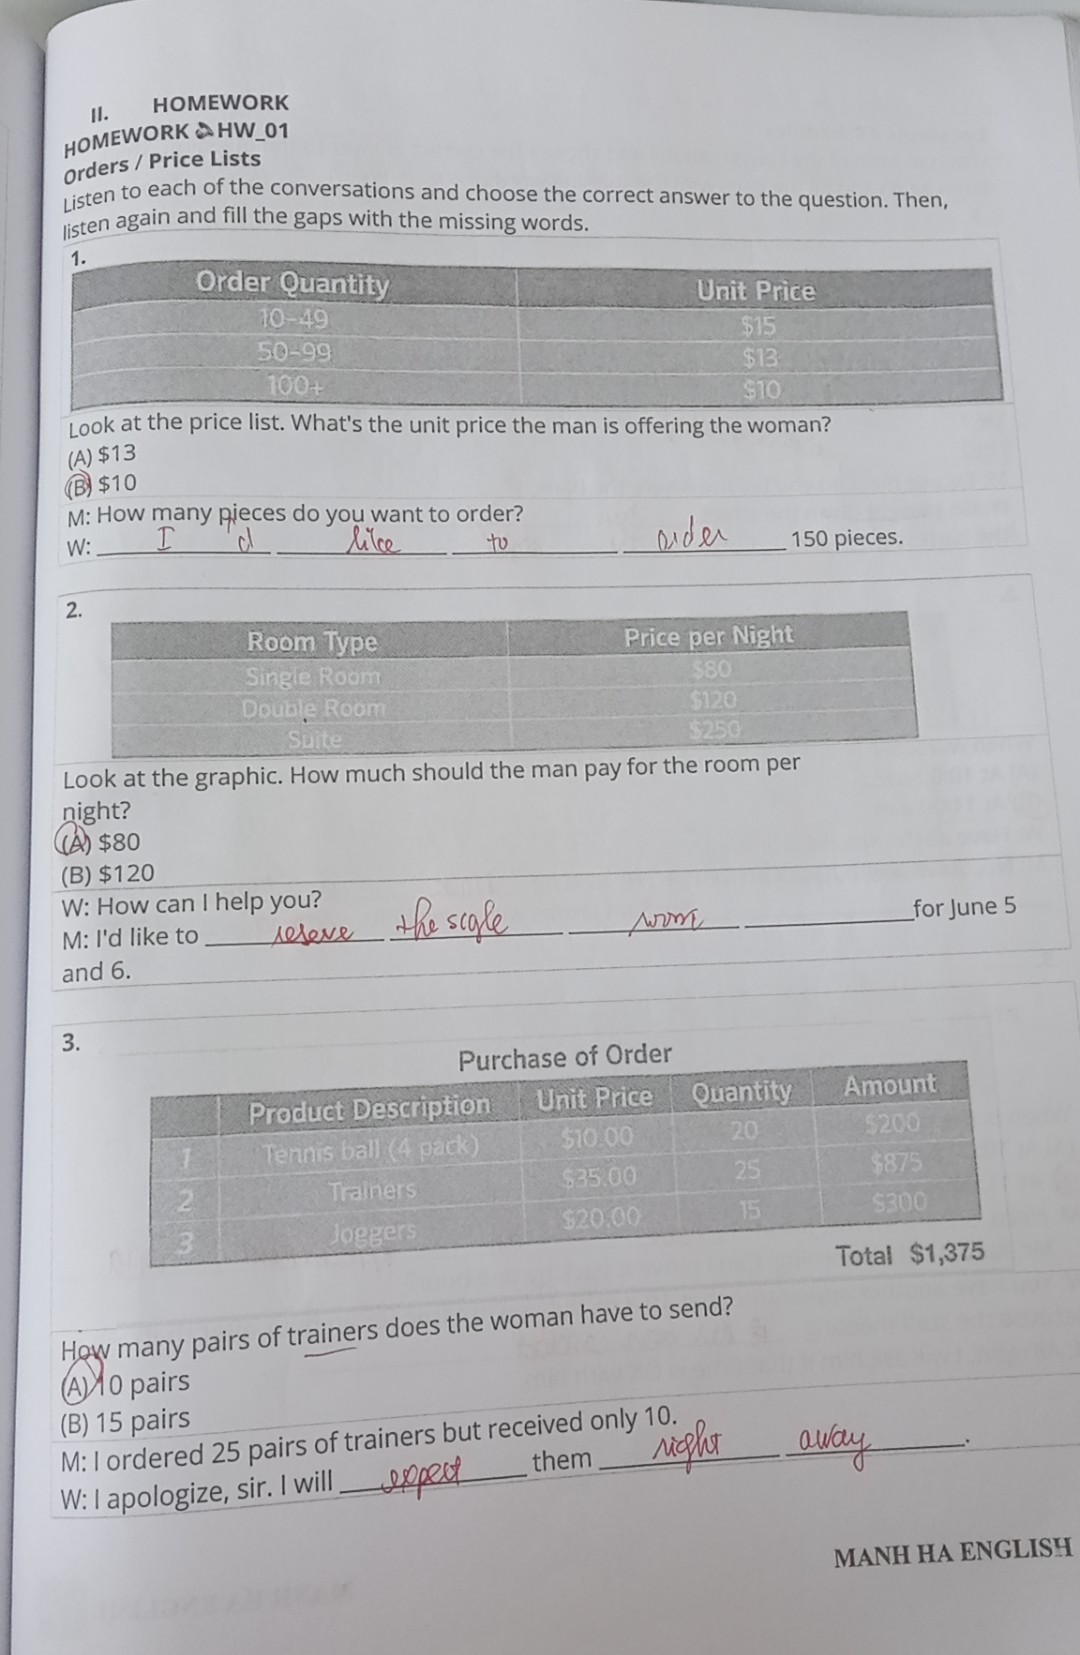 II. HOMEWORK
HOMEWORK HW_01
Orders / Price Lists
Listen to each of the conversations and choose the correct answer to the question. Then,
listen again and fill the gaps with the missing words.
1.
Order Quantity Unit Price
10-49 $15
50-99 $13
100+ $10
Look at the price list. What's the unit price the man is offering the woman?
(A) $13
(B) $10
M: How many pieces do you want to order?
W: I 'd like to order 150 pieces.
2.
Room Type Price per Night
Single Room $80
Double Room $120
Suite $250
Look at the graphic. How much should the man pay for the room per
night?
(A) $80
(B) $120
W: How can I help you?
M: I'd like to reseve the sigle room for June 5
and 6.
3.
Purchase of Order
Product Description Unit Price Quantity Amount
1 Tennis ball (4 pack) $10.00 20 $200
2 Trainers $35.00 25 $875
3 Joggers $20.00 15 $300
Total $1,375
How many pairs of trainers does the woman have to send?
(A) 10 pairs
(B) 15 pairs
M: I ordered 25 pairs of trainers but received only 10.
W: I apologize, sir. I will expect them right away.
MANH HA ENGLISH